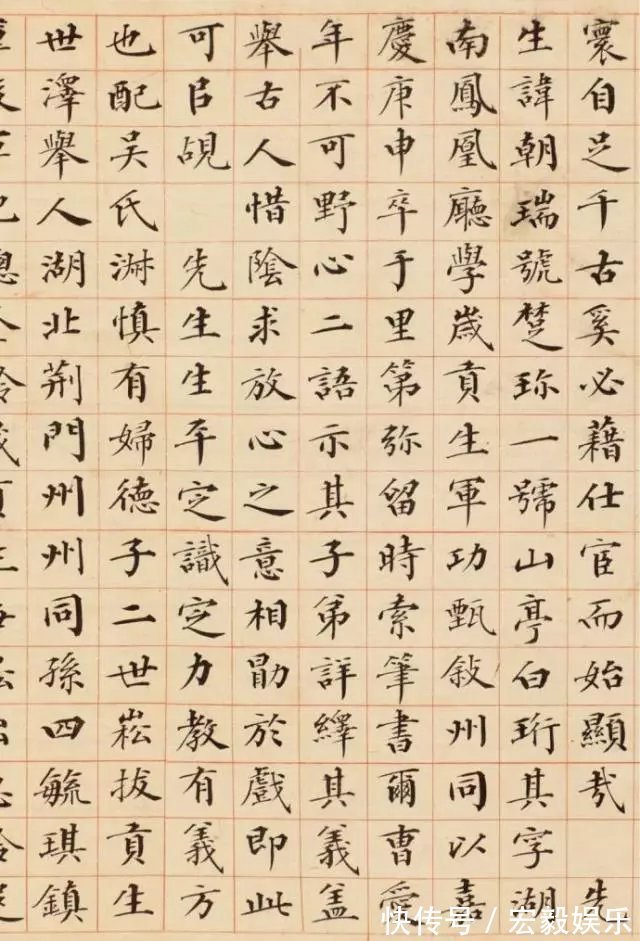 寰自足千古奚必藉仕宦而始顯哉 先
生諱朝瑞號楚珎一號山亭白珩其字湖
南鳳凰廳學歲貢生軍功甄敍州同以嘉
慶庚申卒于里第弥留時索筆書爾曹愛
年不可野心二語示其子弟詳繹其義盖
舉古人惜陰求放心之意相勖於戲即此
可㠯覘 先生生平定識定力教有義方
也配吴氏淑慎有婦德子二世崧拔貢生
世澤舉人湖北荆門州州同孫四毓琪鎮
快传号 / 宏毅娱乐